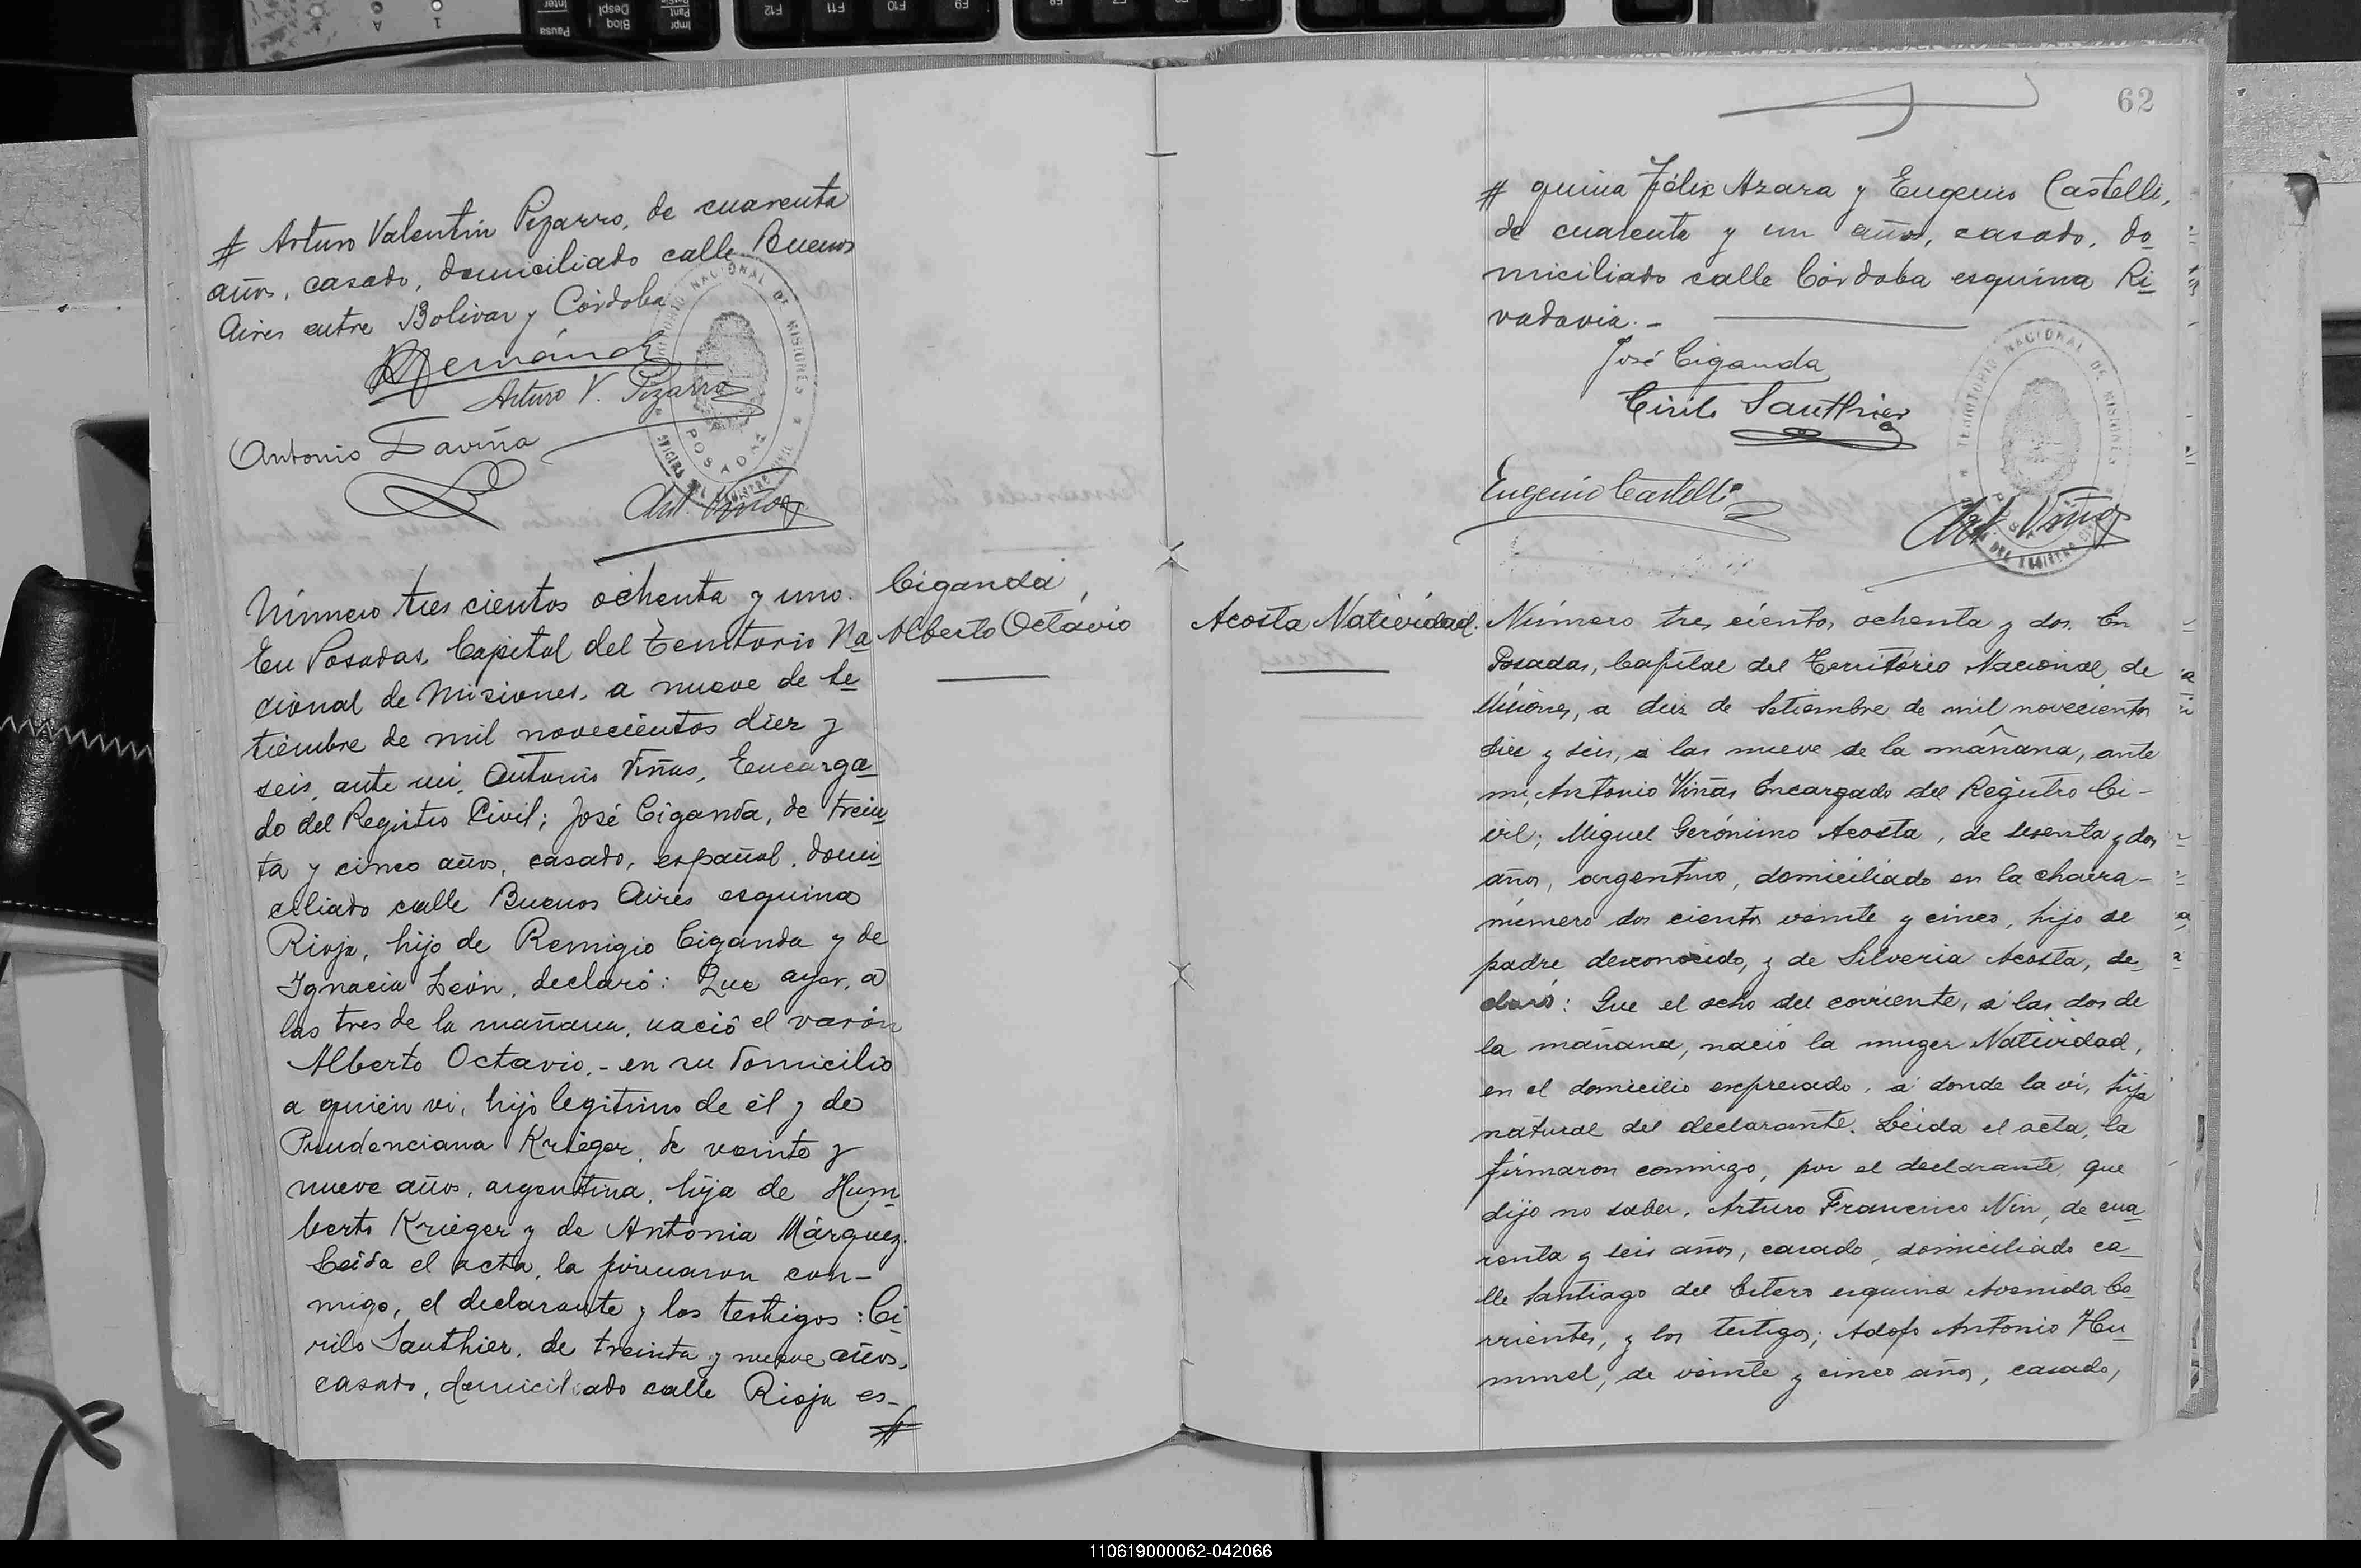 # Arturo Valentin Pizarro, de cuarenta
años, casado, domiciliado calle Buenos
Aires entre Bolivar y Córdoba
Arturo V. Pizarro
Antonio Daviña
Ant. Viñas
TERRITORIO NACIONAL DE MISIONES
POSADAS
OFICINA DEL REGISTRO CIVIL
Número tres cientos ochenta y uno.
En Posadas, Capital del Territorio Na
cional de Misiones, a nueve de Se
tiembre de mil novecientos diez y
seis, ante mi, Antonio Viñas, Encarga
do del Registro Civil; José Ciganda, de trein
ta y cinco años, casado, español, domi
ciliado calle Buenos Aires esquina
Rioja, hijo de Remigio Ciganda y de
Ignacia León, declaró: Que ayer, a
las tres de la mañana, nació el varón
Alberto Octavio.- en su domicilio
a quien vi, hijo legitimo de él y de
Prudenciana Krieger, de veinte y
nueve años, argentina, hija de Hum
berto Krieger y de Antonia Márquez.
Leida el acta, la firmaron con-
migo, el declarante y los testigos: Ci
rilo Sauthier, de treinta y nueve años,
casado, domiciliado calle Rioja es-
#
Ciganda,
Alberto Octavio
62
# quina Félix Azara y Eugenio Castelli,
de cuarenta y un años, casado, do
miciliado calle Córdoba esquina Ri
vadavia.-
José Ciganda
Cirilo Sauthier
Eugenio Castelli
Ant. Viñas
TERRITORIO NACIONAL DE MISIONES
DEL REGISTRO
Acosta Natividad.
Número tres cientos ochenta y dos. En
Posadas, Capital del Territorio Nacional de
Misiones, a diez de Setiembre de mil novecientos
diez y seis, a las nueve de la mañana, ante
mi, Antonio Viñas Encargado del Registro Ci-
vil; Miguel Gerónimo Acosta, de sesenta y dos
años, argentino, domiciliado en la chacra-
número dos cientos veinte y cinco, hijo de
padre desconocido, y de Silveria Acosta, de
claró: Que el ocho del corriente, a las dos de
la mañana, nació la muger Natividad,
en el domicilio expresado, a donde la vi, hija
natural del declarante. Leida el acta, la
firmaron conmigo, por el declarante, que
dijo no saber, Arturo Francisco Nin, de cua
renta y seis años, casado, domiciliado ca-
lle Santiago del Estero esquina Avenida Co-
rrientes, y los testigos; Adolfo Antonio Hu-
mmel, de veinte y cinco años, casado,
110619000062-042066